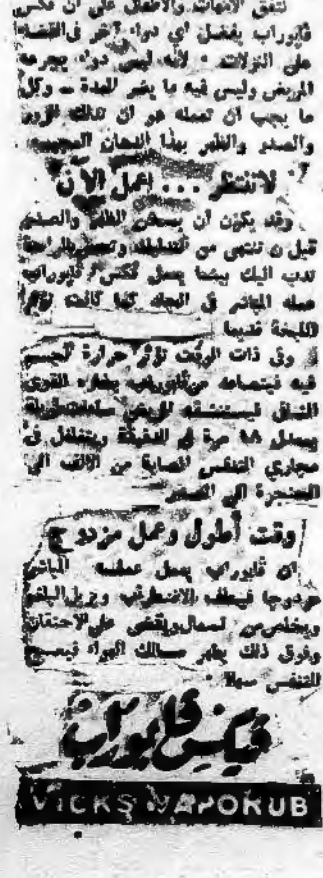 تتفق الأمهات والأطفال على أن فكس
ڤابوراب يفضل أي دواء آخر في القضاء
على النزلات • لأنه ليس دواء يجرعه
المريض وليس فيه ما يضر المعدة ـ وكل
ما يجب أن تعمله هو أن تدلك الزور
والصدر والظهر بهذا الدهان العجيب
لا تنتظر ... اعمل الآن
وقد يكون أن يسخن الظهر والصدر
قبل أن تنتهي من
تدب اليك بينما يعمل ڤكس ڤابوراب
عمله المباشر في الجلد كما كانت تؤثر
اللبخة قديما
وفي ذات الوقت تؤثر حرارة الجسم
فيه فيتصاعد من ڤابوراب بخاره القوي
الشافي فيستنشقه المريض ساعات طويلة
بمعدل ١٨ مرة في الدقيقة ويتغلغل في
مجاري التنفس المصابة من الأنف الى
الحنجرة الى الصدر
وقت أطول وعمل مزدوج
ان ڤابوراب يعمل عمله المباشر
مزدوجا فيلطف الاضطراب ويزيل البلغم
ويخلص من السعال ويقضي على الاحتقان
وفوق ذلك يطهر مسالك الهواء فيصبح
التنفس سهلا
ڤيكس ڤابوراب
VICKS VAPORUB